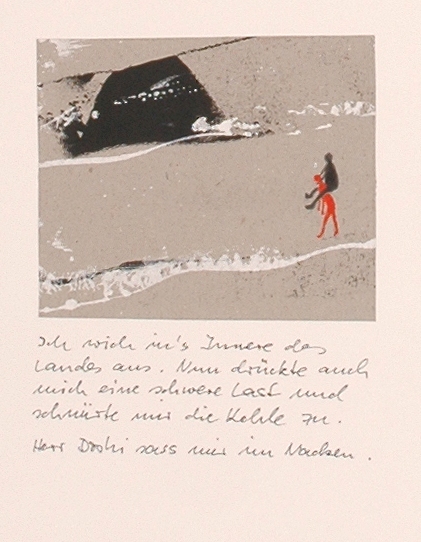 Ich wich in's Innere des
Landes aus. Nun drückte auch
mich eine schwere Last und
schnürte mir die Kehle zu.
Herr Doshi sass mir im Nacken.